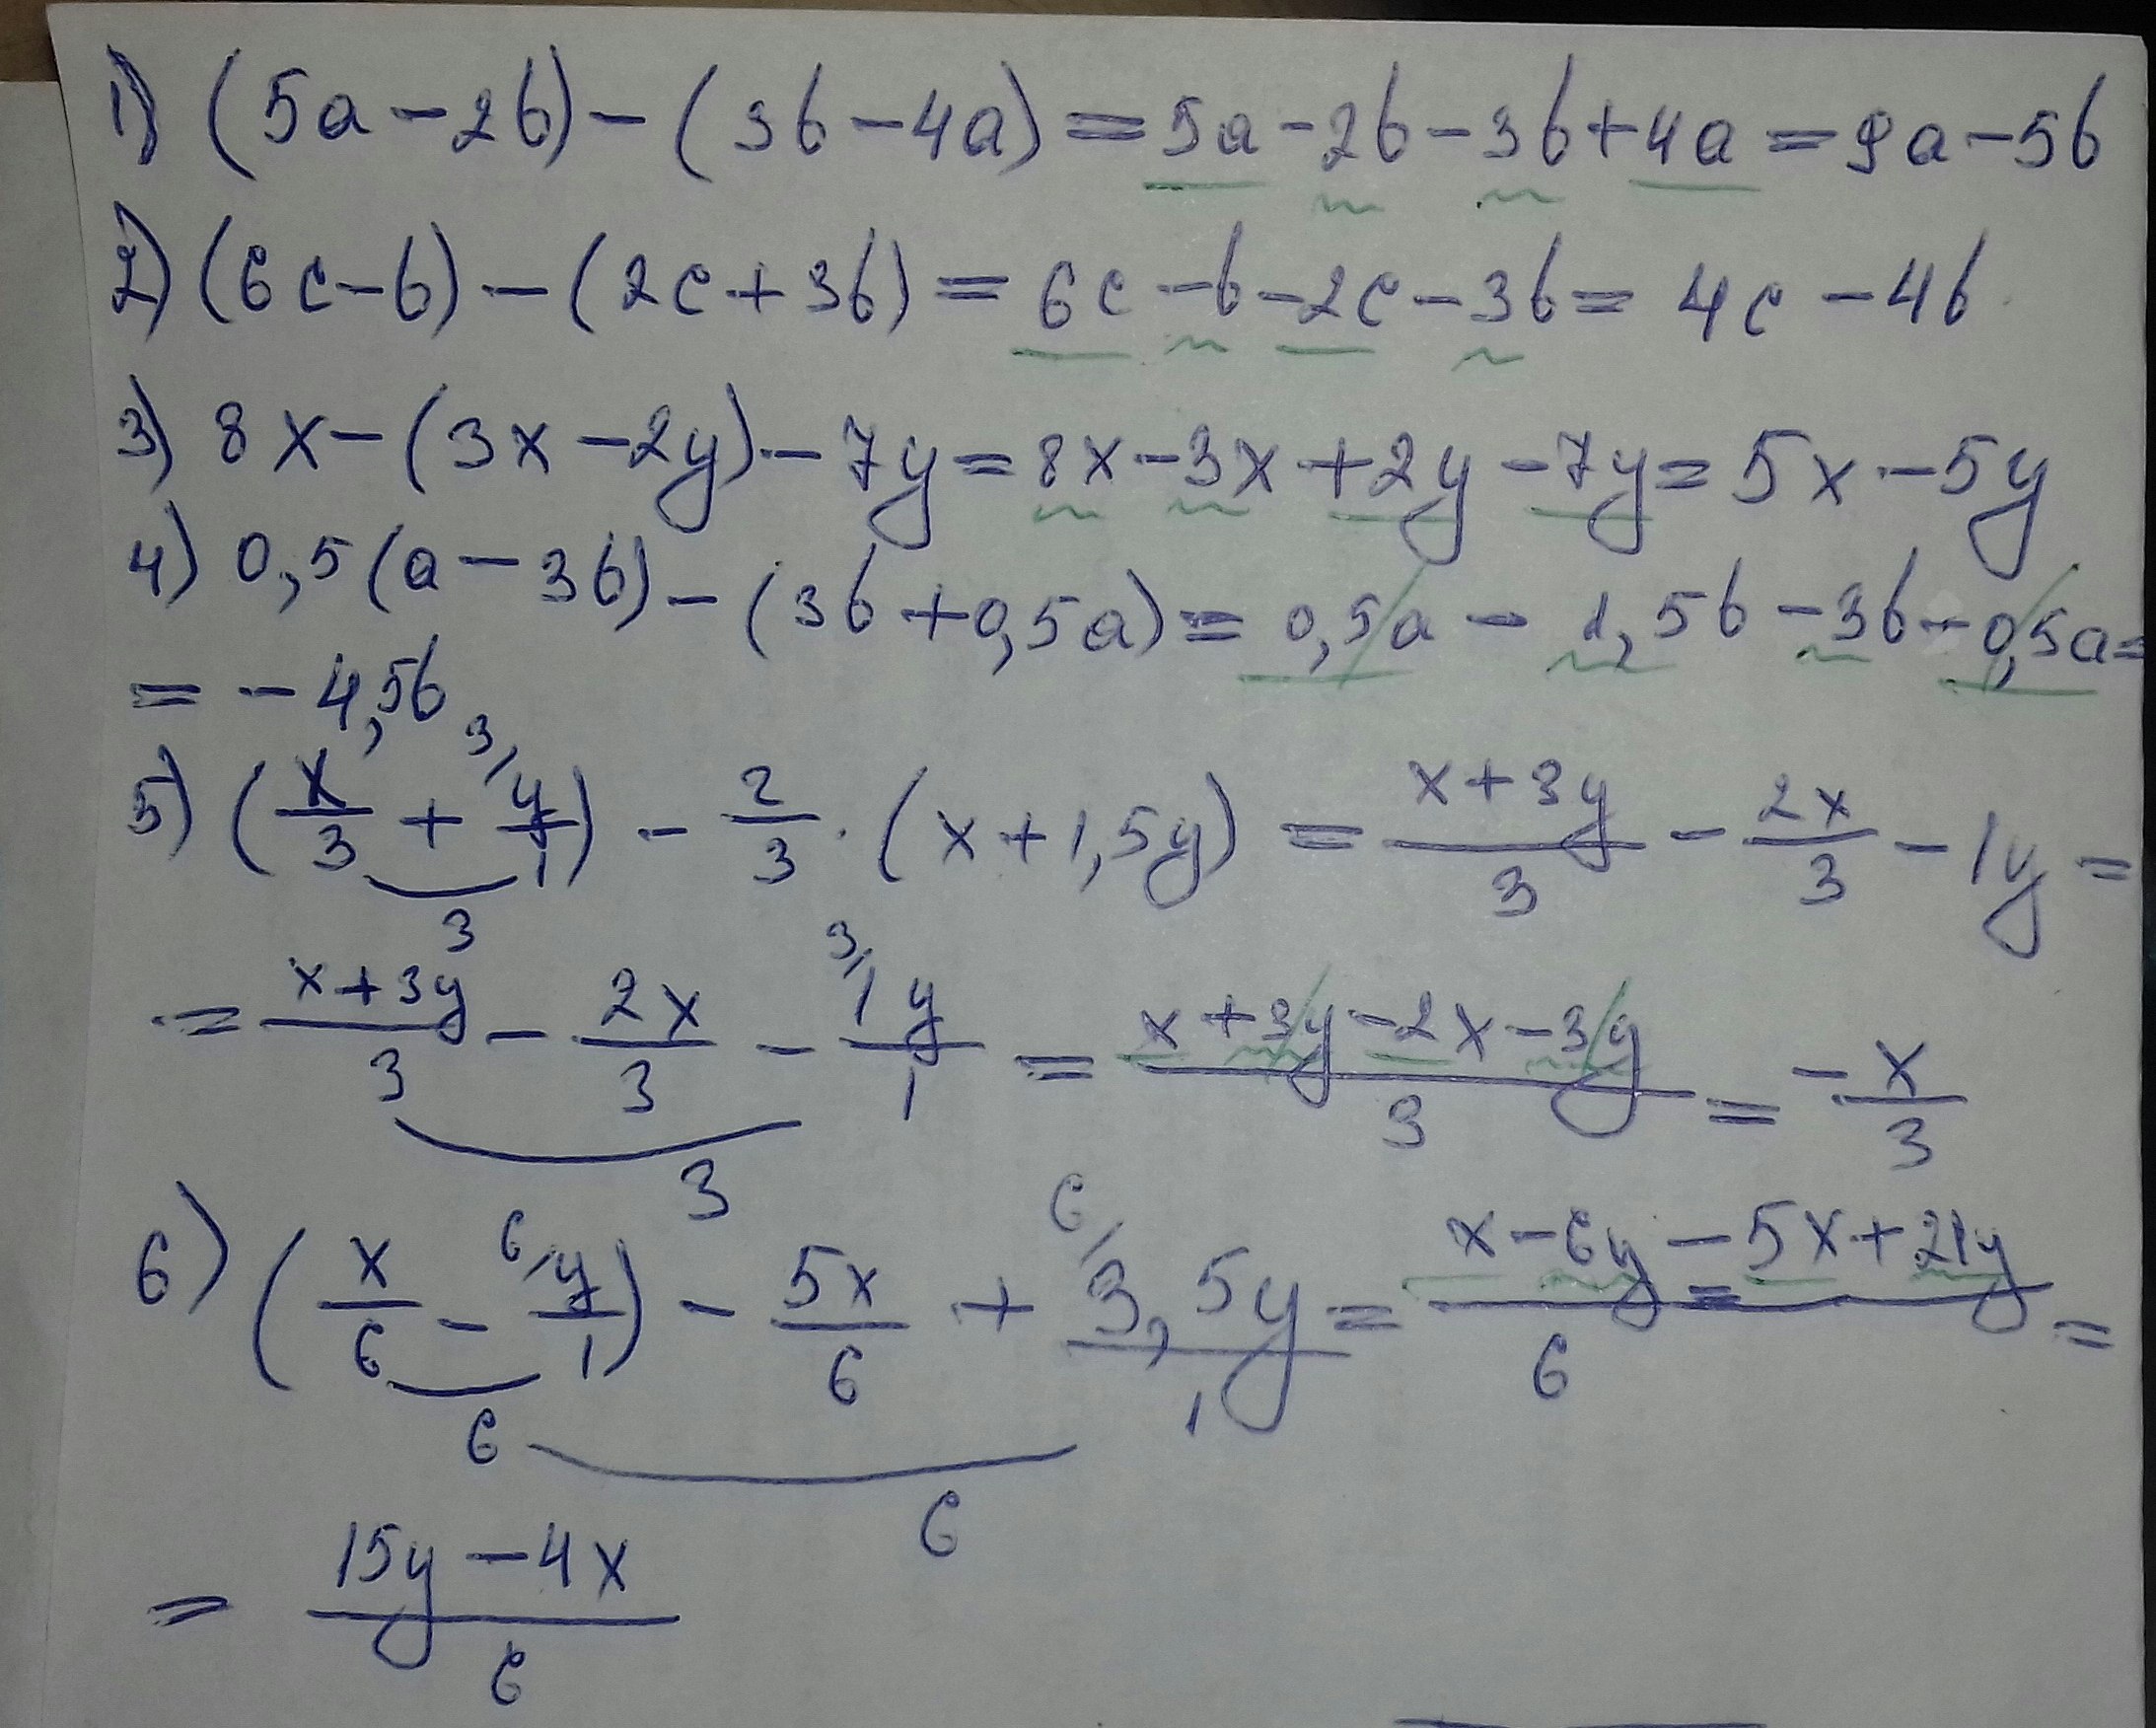 1) (5a-2b)-(3b-4a)=5a-2b-3b+4a=9a-5b
2) (6c-b)-(2c+3b)=6c-b-2c-3b=4c-4b
3) 8x-(3x-2y)-7y=8x-3x+2y-7y=5x-5y
4) 0,5(a-3b)-(3b+0,5a)=0,5a-1,5b-3b-0,5a=
=-4,5b
5) (x/3 + 3/ y/1) - 2/3 · (x+1,5y) = (x+3y)/3 - 2x/3 - 1y =
3
= (x+3y)/3 - 2x/3 - 3/ 1y/1 = (x+3y-2x-3y)/3 = -x/3
3
6) (x/6 - 6/ y/1) - 5x/6 + 6/ 3,5y/1 = (x-6y-5x+21y)/6 =
6
6
= (15y-4x)/6